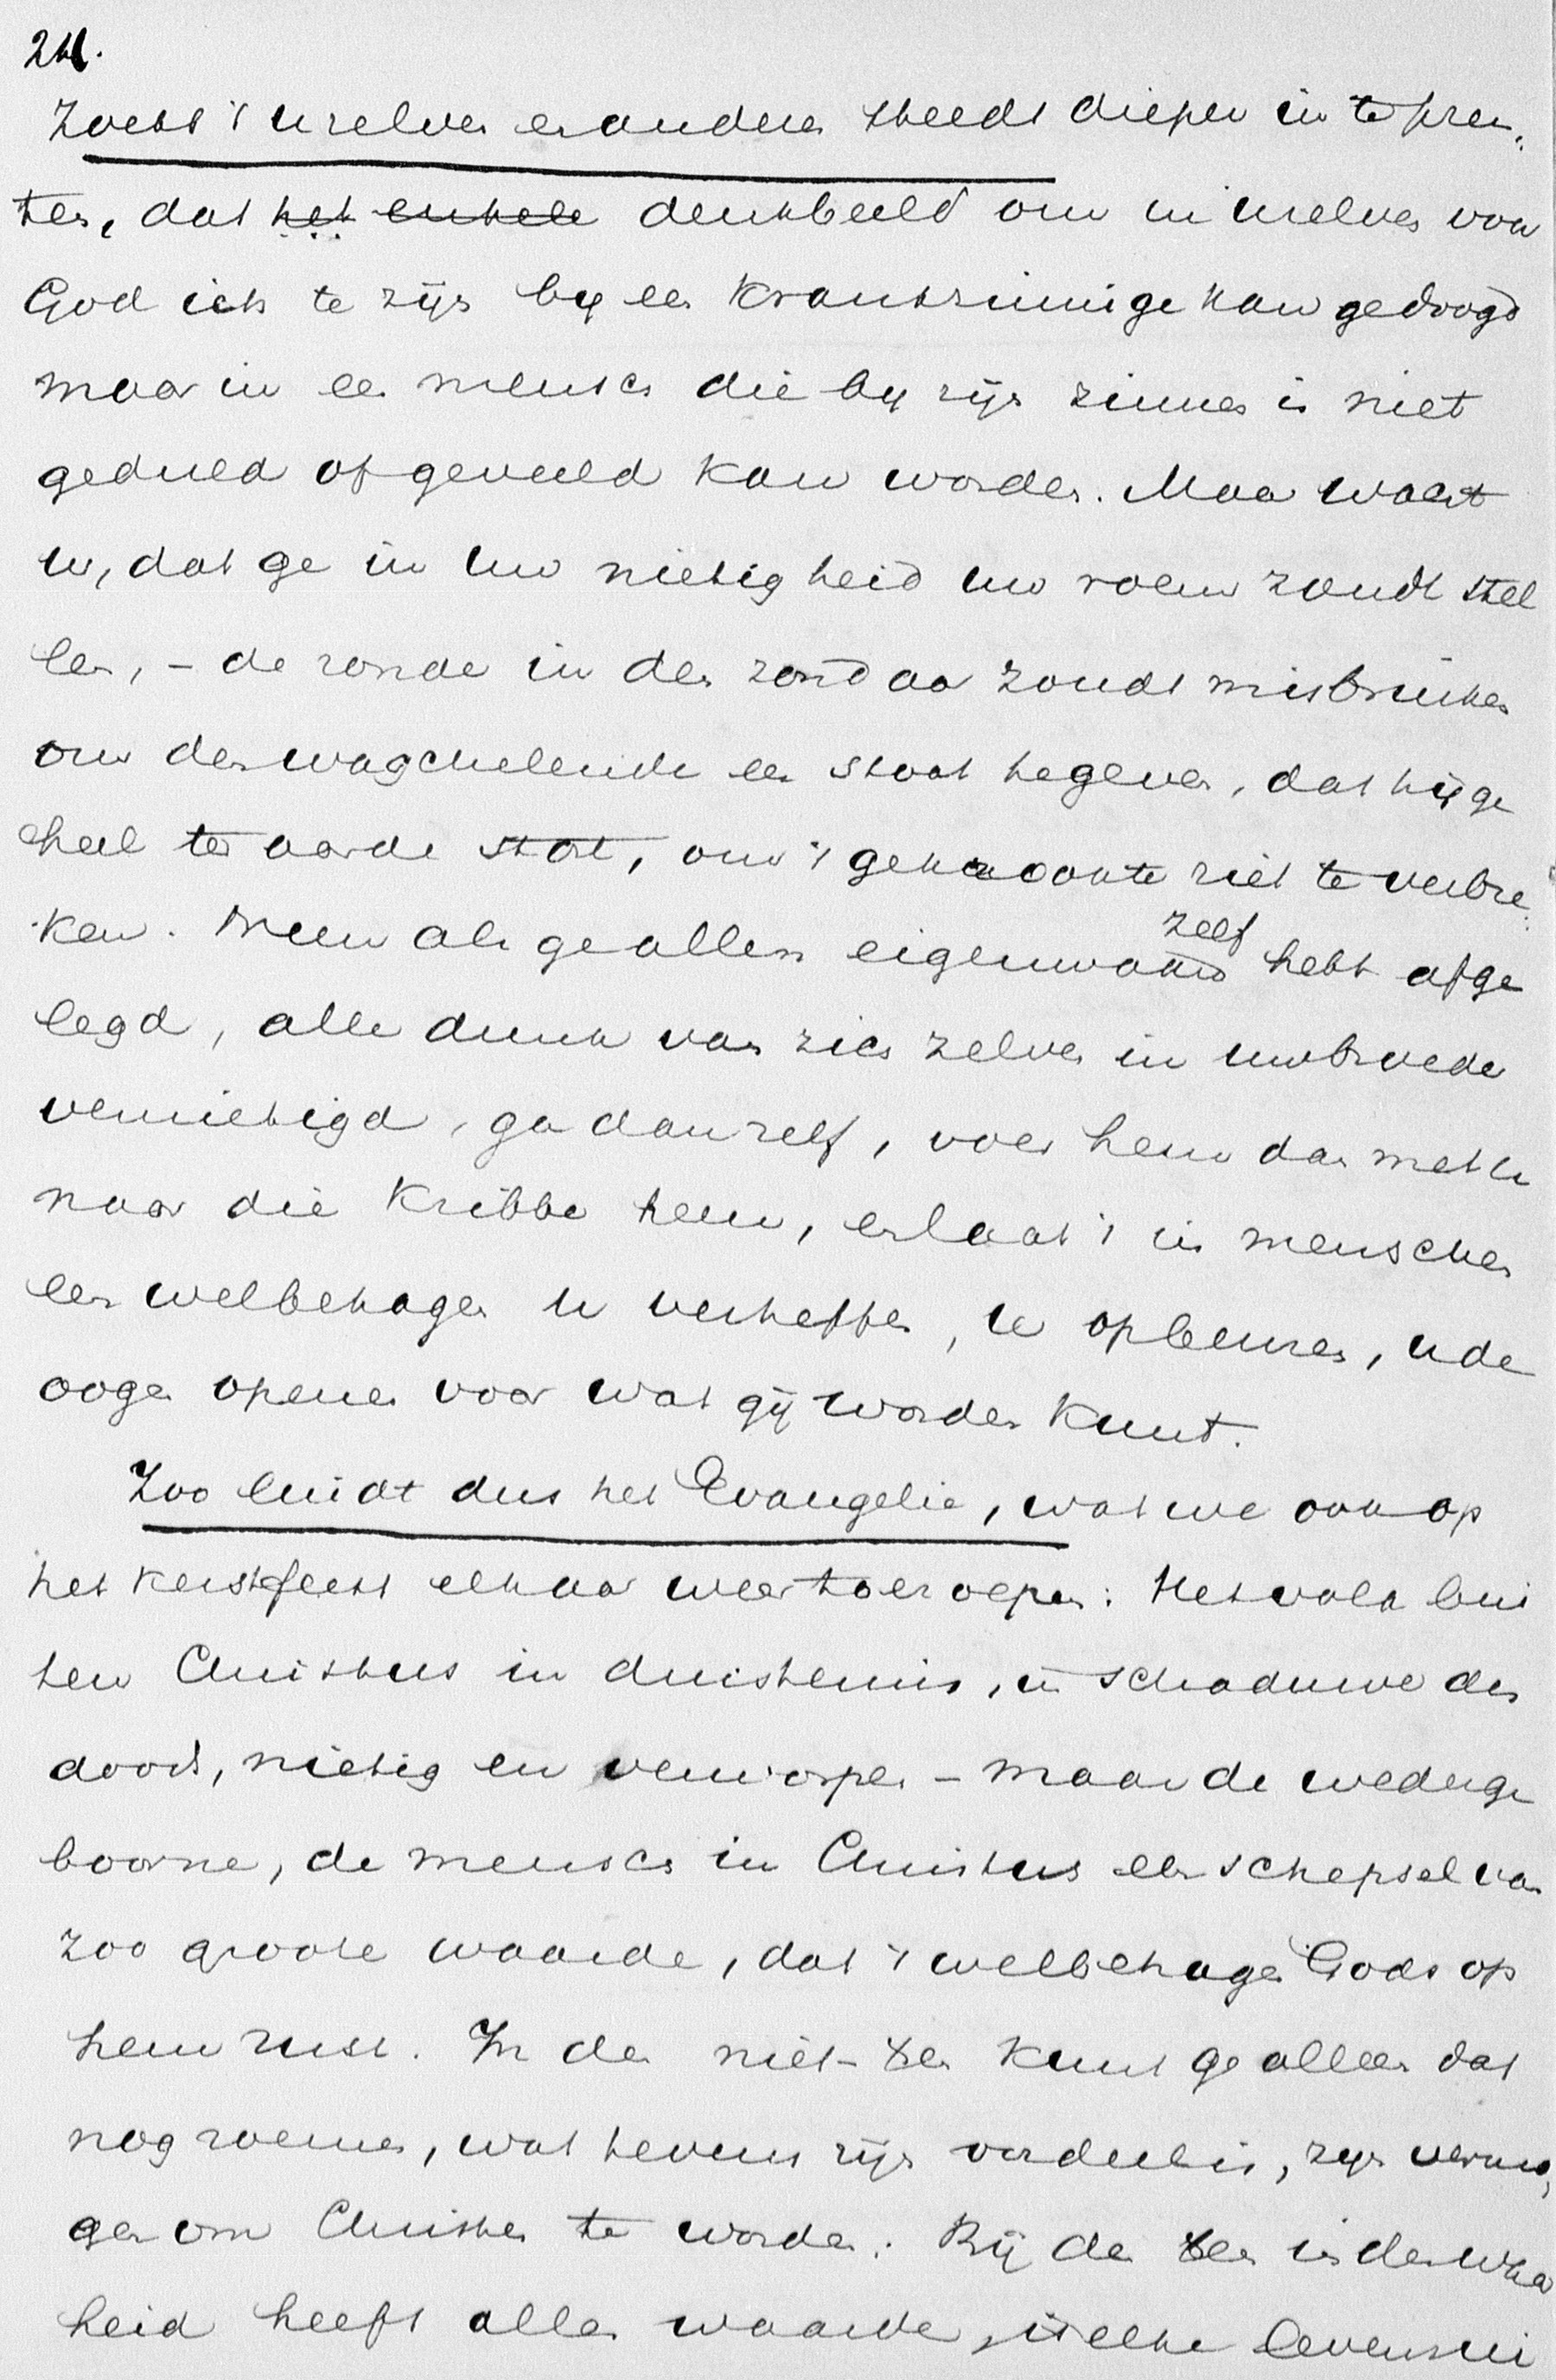 24.
Zoekt 't uzelven en anderen steeds dieper in te pren-
ten, dat het enkele denkbeeld om in uzelven voor
God iets te zijn bij een krankzinnige kan gedoogd
maar in een mensch die bij zijn zinnen is niet
geduld of geveeld kan worden. Maar wacht
u, dat ge in uw nietigheid uw roem zoudt stel
len, – de zonde in den zondaar zoudt misbruiken
om den waggelende een stoot te geven, dat hij ge
heel ter aarde stort, om 't gekrookte riet te verbre-
ken. Neen als ge allen eigenwaan zelf hebt afge
legd, alle dunk van zich zelven in uw broeder
vernietigd, ga dan zelf, voer hem dan met u
naar die Kribbe heen, en laat 't in menschen
een welbehagen u verheffen, u opbeuren, u de
oogen openen voor wat gij worden kunt.
Zoo luidt dus het Evangelie, wat we ook op
het kerstfeest elkaar weer toeroepen: Het volk bui
ten Christus in duisternis, in schaduwe des
doods, nietig en verworpen – maar de wederge
boorne, de mensch in Christus een schepsel van
zoo groote waarde, dat 't welbehagen Gods op
hem rust. In den niet-Xen kunt ge alleen dat
nog roemen, wat tevens zijn oordeel is, zijn vermo-
gen om Christen te worden. Bij den Xen in der waar
heid heeft alles waarde, is elke levensui